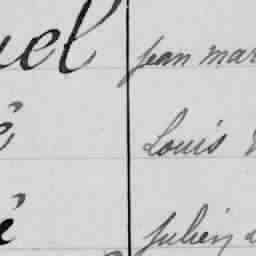 uel Jean mar
é Louis
é Julien